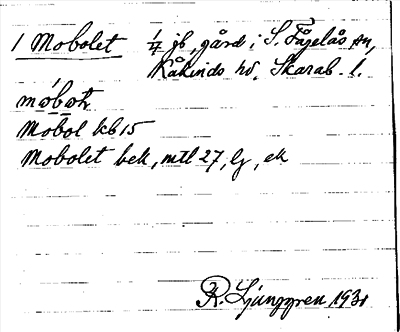 1 Mobolet 1/4 jb, gård i S. Fågelås sn,
Kåkinds hd, Skarab. l.
Mobol kb 15
Mobolet bek, mtl 27, lj, ek
R. Ljunggren 1931